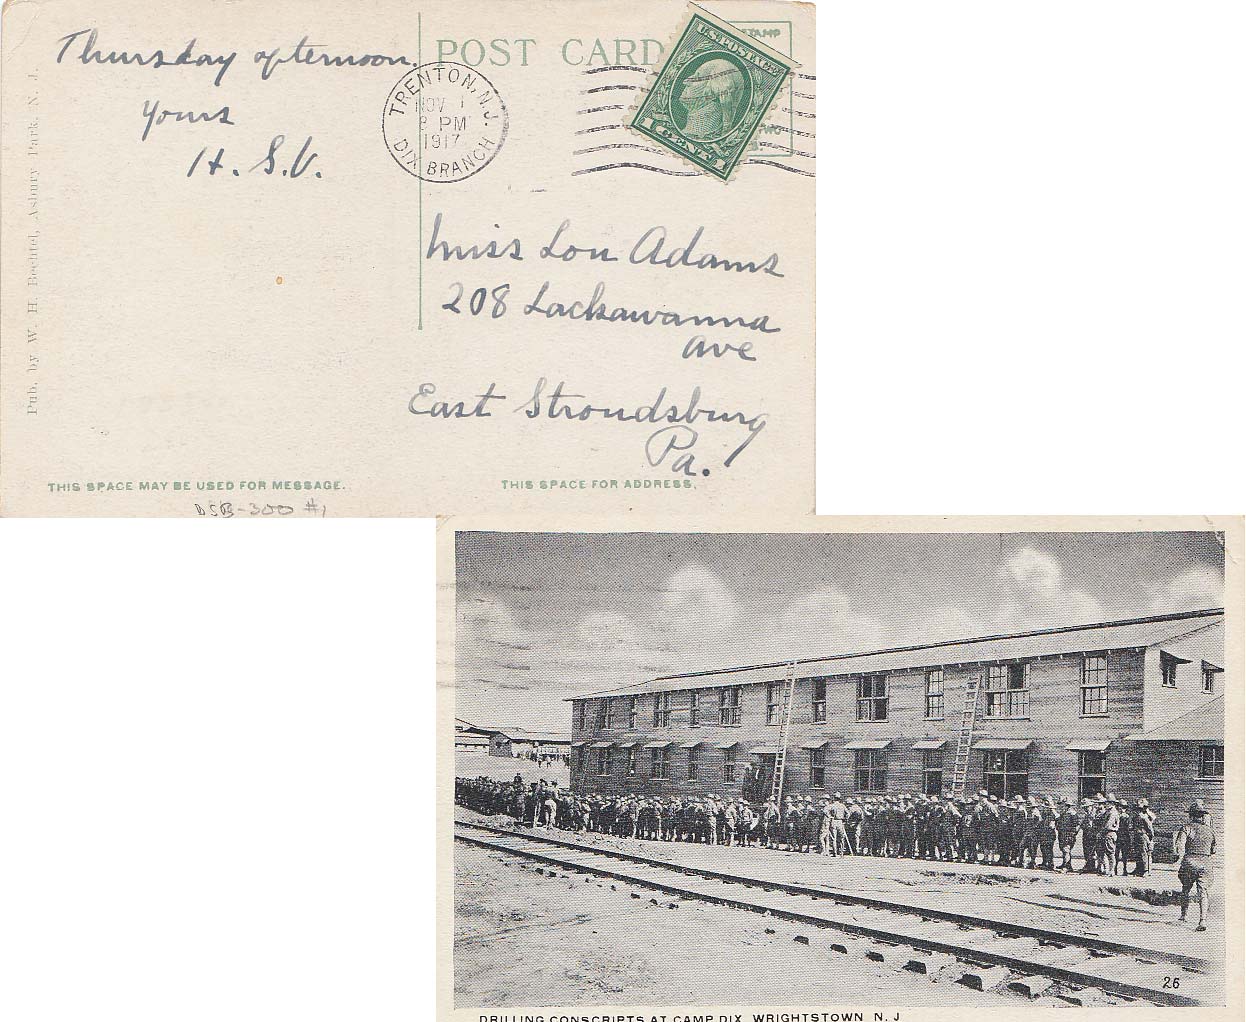 Thursday afternoon.
Yours
H. S. V.
Pub. by W. H. Bechtel, Asbury Park, N. J.
THIS SPACE MAY BE USED FOR MESSAGE.
DSB-300 #1
POST CARD
STAMP
TRENTON, N.J.
NOV 1
8 PM
1917
DIX BRANCH
U.S. POSTAGE
1 CENT 1
Miss Lou Adams
208 Lackawanna
Ave
East Stroudsburg
Pa.
THIS SPACE FOR ADDRESS.
26
DRILLING CONSCRIPTS AT CAMP DIX, WRIGHTSTOWN N. J